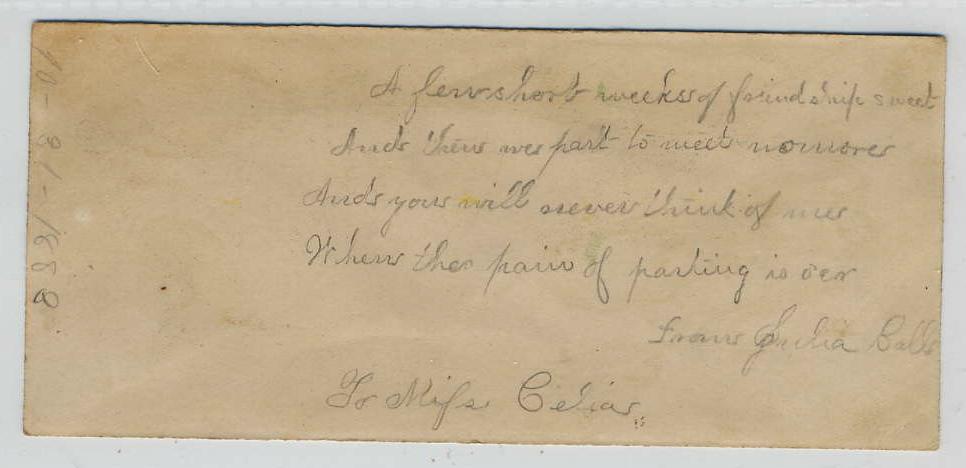 A few short weeks of friendship sweet
And then we part to meet nomore
And you will never think of me
When the pain of parting is oer
From Julia Ball
To Miss Celia